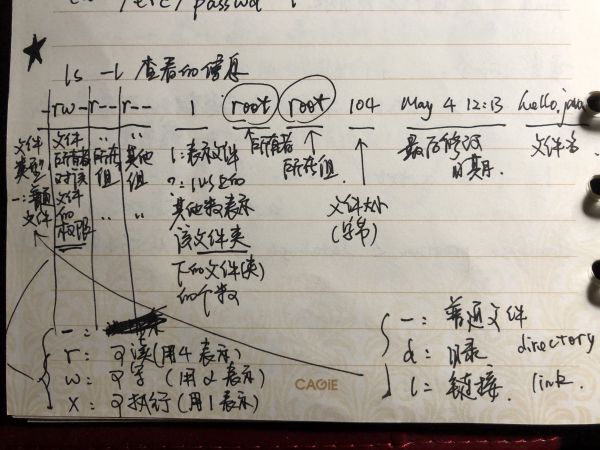 /etc/passwd
ls -l 查看的信息
-rw-r--r-- 1 root root 104 May 4 12:13 hello.java
文件类型
-: 普通文件
文件所有者对该文件的权限
" 所在组 "
" 其他组 "
1: 表示文件
其他数表示
该文件夹
下的文件(夹)
的个数
所有者
所在组
文件大小
(字节)
最后修改
日期.
文件名
-:
r: 可读(用4表示)
w: 可写 (用2表示)
x: 可执行(用1表示)
-: 普通文件
d: 目录 directory
l: 链接. link.
CAGIE